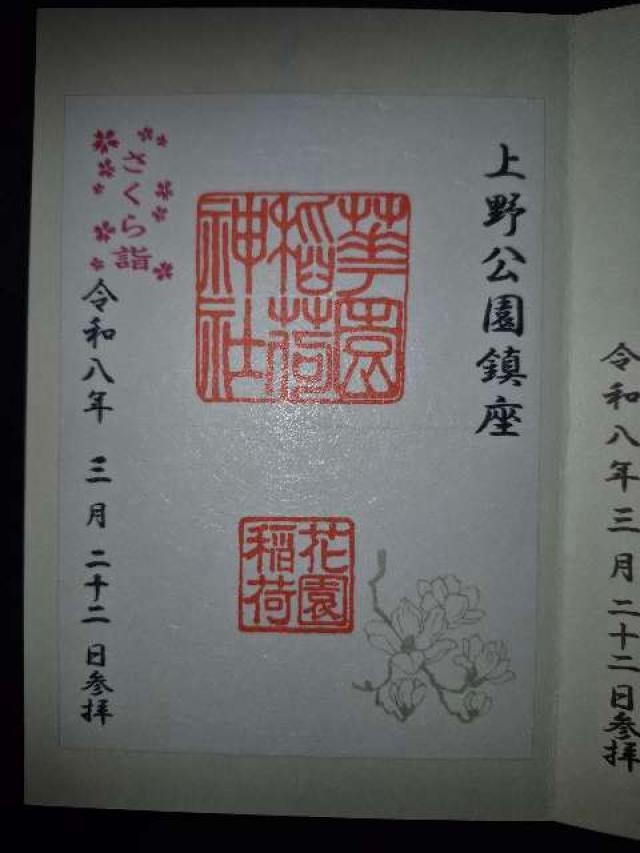 上野公園鎮座
華園
稲荷
神社
花園
稲荷
さくら詣
令和八年 三月 二十二日参拝
令和八年三月二十二日参拝